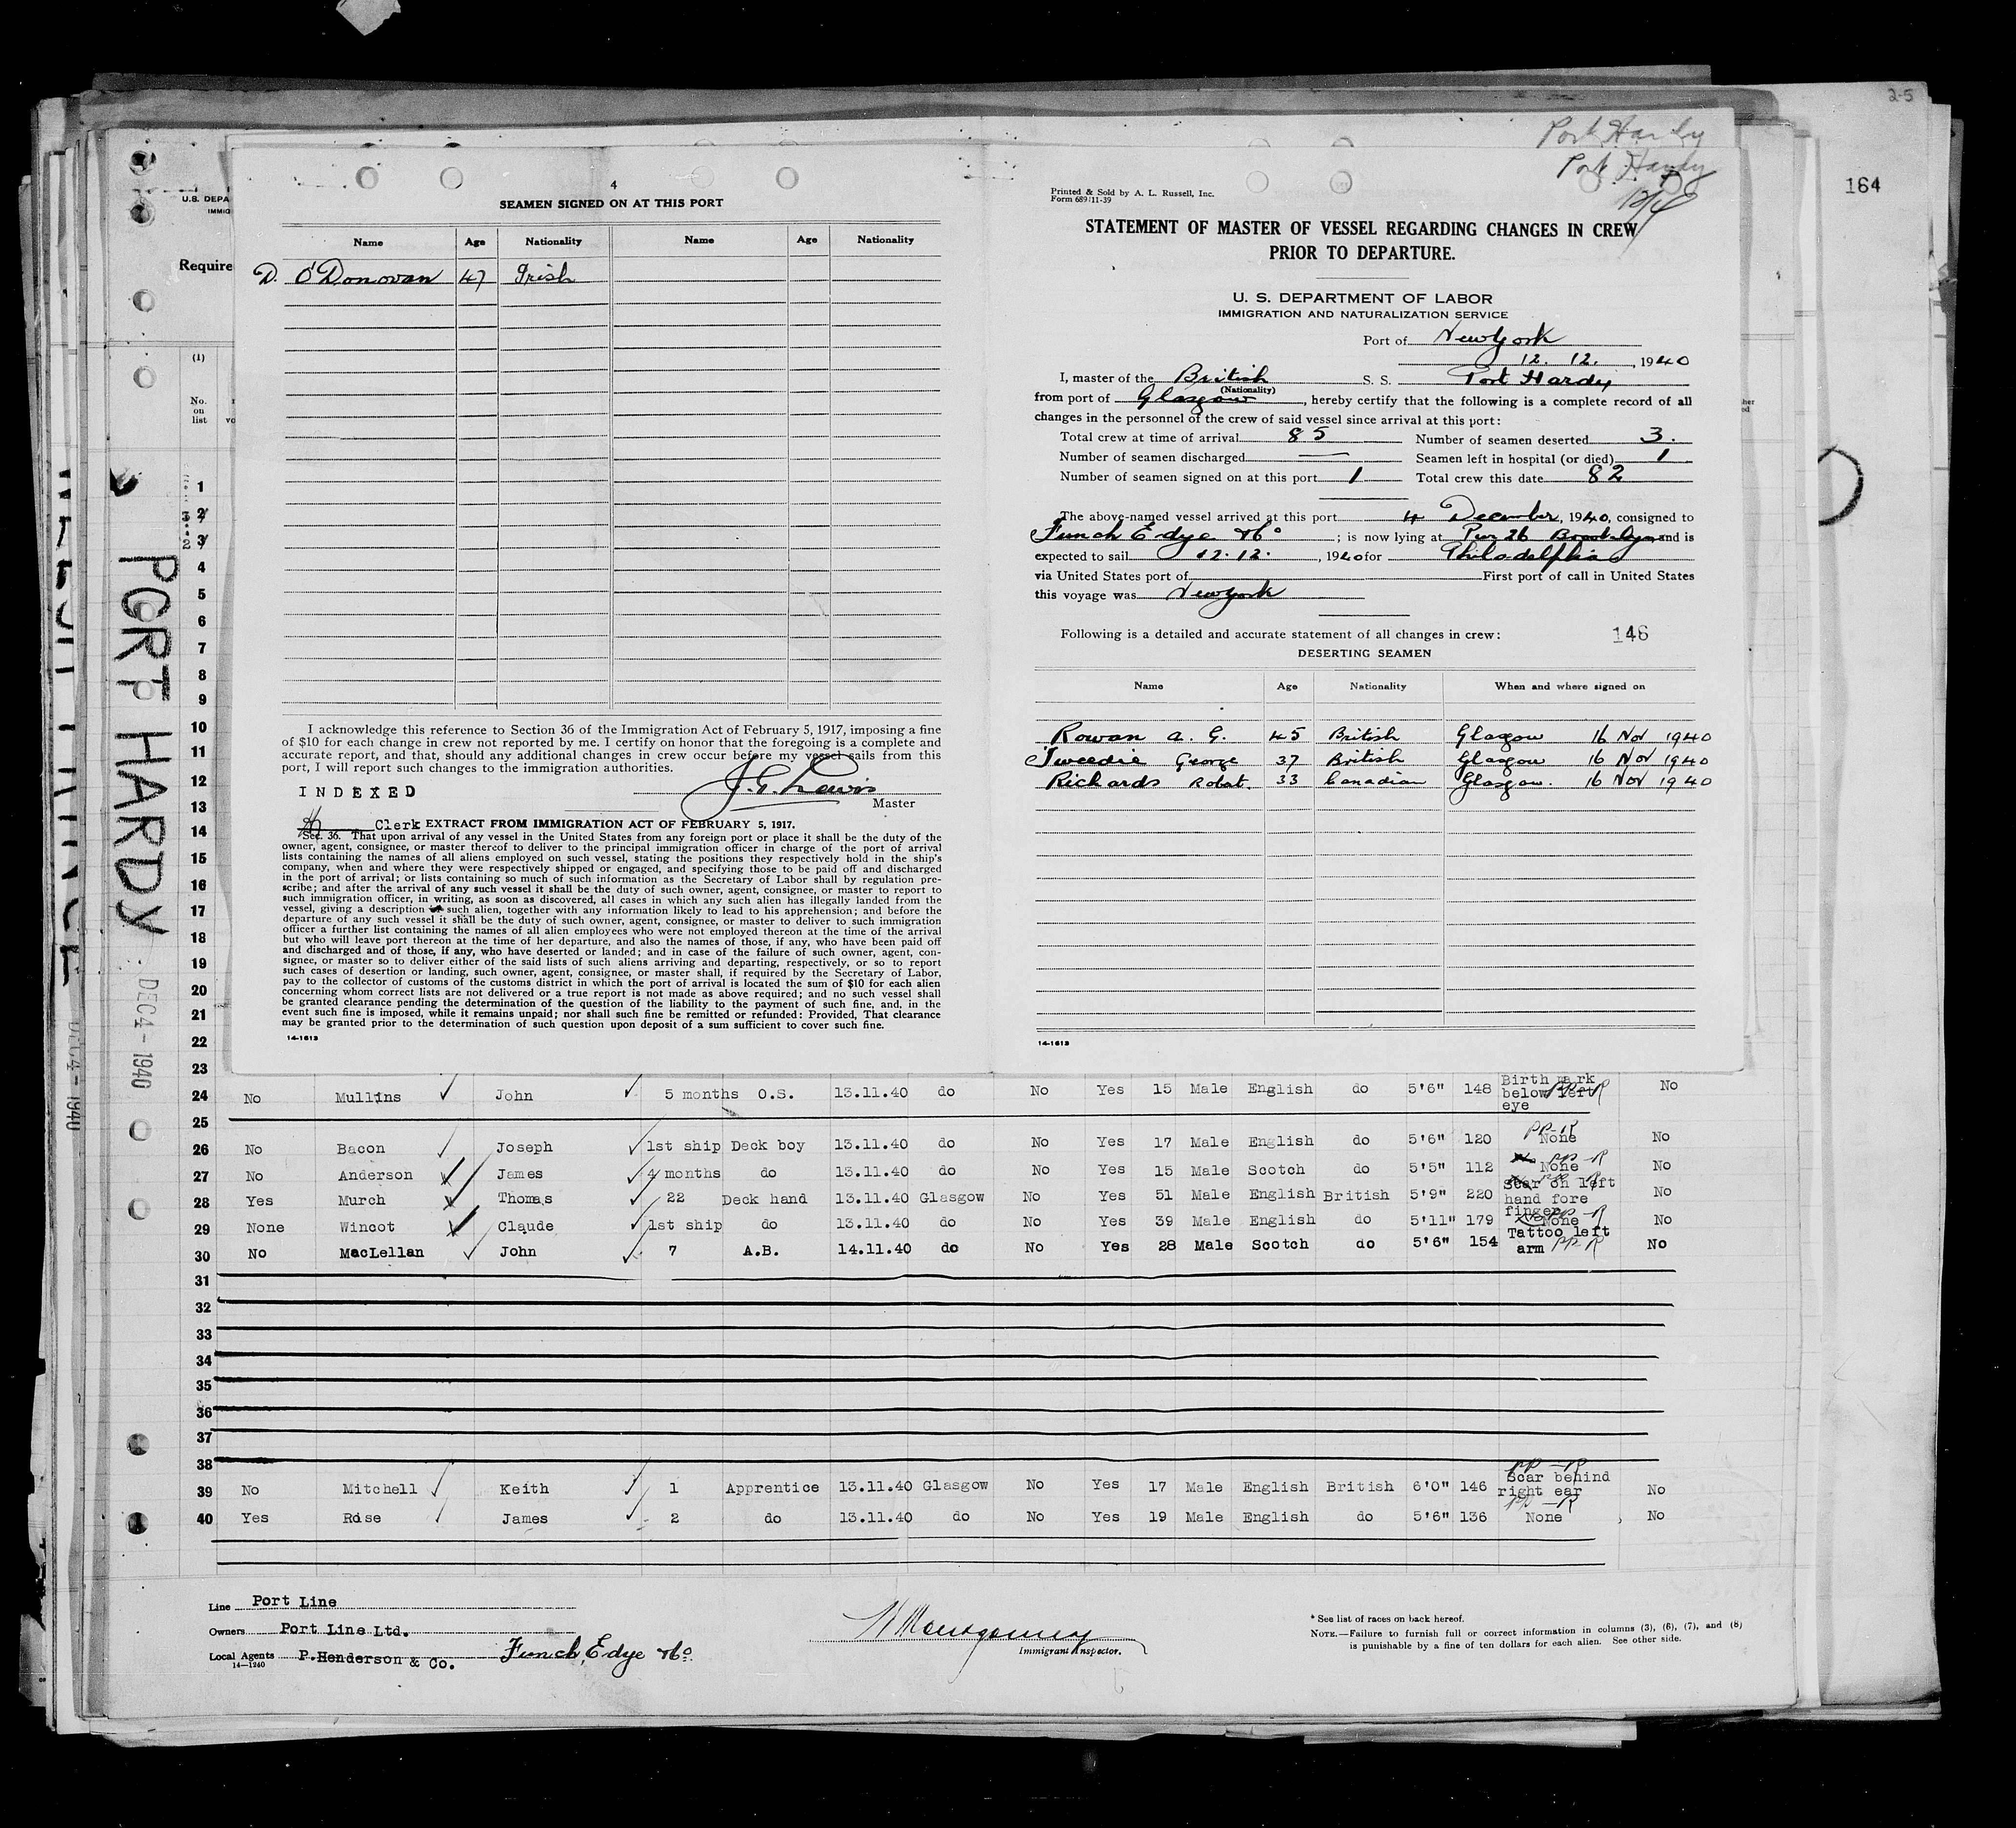 2-5
164
Port Hardy
Port Hardy
U.S. DEPA
IMMIG
Require
(1)
No.
on
list
PORT HARDY
DEC 4 - 1940
DEC 4 - 1940
4
SEAMEN SIGNED ON AT THIS PORT
Name Age Nationality Name Age Nationality
D. O'Donovan 47 Irish
I acknowledge this reference to Section 36 of the Immigration Act of February 5, 1917, imposing a fine
of $10 for each change in crew not reported by me. I certify on honor that the foregoing is a complete and
accurate report, and that, should any additional changes in crew occur before my vessel sails from this
port, I will report such changes to the immigration authorities.
J.G. Lewis
INDEXED
Master
Clerk EXTRACT FROM IMMIGRATION ACT OF FEBRUARY 5, 1917.
Sec. 36. That upon arrival of any vessel in the United States from any foreign port or place it shall be the duty of the
owner, agent, consignee, or master thereof to deliver to the principal immigration officer in charge of the port of arrival
lists containing the names of all aliens employed on such vessel, stating the positions they respectively hold in the ship's
company, when and where they were respectively shipped or engaged, and specifying those to be paid off and discharged
in the port of arrival; or lists containing so much of such information as the Secretary of Labor shall by regulation pre-
scribe; and after the arrival of any such vessel it shall be the duty of such owner, agent, consignee, or master to report to
such immigration officer, in writing, as soon as discovered, all cases in which any such alien has illegally landed from the
vessel, giving a description of such alien, together with any information likely to lead to his apprehension; and before the
departure of any such vessel it shall be the duty of such owner, agent, consignee, or master to deliver to such immigration
officer a further list containing the names of all alien employees who were not employed thereon at the time of the arrival
but who will leave port thereon at the time of her departure, and also the names of those, if any, who have been paid off
and discharged and of those, if any, who have deserted or landed; and in case of the failure of such owner, agent, con-
signee, or master so to deliver either of the said lists of such aliens arriving and departing, respectively, or so to report
such cases of desertion or landing, such owner, agent, consignee, or master shall, if required by the Secretary of Labor,
pay to the collector of customs of the customs district in which the port of arrival is located the sum of $10 for each alien
concerning whom correct lists are not delivered or a true report is not made as above required; and no such vessel shall
be granted clearance pending the determination of the question of the liability to the payment of such fine, and, in the
event such fine is imposed, while it remains unpaid; nor shall such fine be remitted or refunded: Provided, That clearance
may be granted prior to the determination of such question upon deposit of a sum sufficient to cover such fine.
14-1613
Printed & Sold by A. L. Russell, Inc.
Form 689/11-39
STATEMENT OF MASTER OF VESSEL REGARDING CHANGES IN CREW
PRIOR TO DEPARTURE.
U. S. DEPARTMENT OF LABOR
IMMIGRATION AND NATURALIZATION SERVICE
Port of New York
12. 12. , 1940
I, master of the British S. S. Port Hardy
(Nationality)
from port of Glasgow, hereby certify that the following is a complete record of all
changes in the personnel of the crew of said vessel since arrival at this port:
Total crew at time of arrival 85 Number of seamen deserted 3.
Number of seamen discharged — Seamen left in hospital (or died) 1
Number of seamen signed on at this port 1 Total crew this date 82
The above-named vessel arrived at this port 4 December, 1940, consigned to
Funch Edye & Co ; is now lying at Pier 26 Brooklyn and is
expected to sail 12. 12. , 1940 for Philadelphia
via United States port of First port of call in United States
this voyage was New York
Following is a detailed and accurate statement of all changes in crew: 146
DESERTING SEAMEN
Name Age Nationality When and where signed on
Rowan A. G. 45 British Glasgow 16 Nov 1940
Tweedie George 37 British Glasgow 16 Nov 1940
Richards Robat. 33 Canadian Glasgow. 16 Nov 1940
14-1613
1
2
3
4
5
6
7
8
9
10
11
12
13
14
15
16
17
18
19
20
21
22
23
24 No Mullins John 5 months O.S. 13.11.40 do No Yes 15 Male English do 5'6" 148 Birth mark below left eye No
25
26 No Bacon Joseph 1st ship Deck boy 13.11.40 do No Yes 17 Male English do 5'6" 120 None No
27 No Anderson James 4 months do 13.11.40 do No Yes 15 Male Scotch do 5'5" 112 None No
28 Yes Murch Thomas 22 Deck hand 13.11.40 Glasgow No Yes 51 Male English British 5'9" 220 Scar on left hand fore finger No
29 None Wincot Claude 1st ship do 13.11.40 do No Yes 39 Male English do 5'11" 179 None No
30 No MacLellan John 7 A.B. 14.11.40 do No Yes 28 Male Scotch do 5'6" 154 Tattoo left arm No
31
32
33
34
35
36
37
38
39 No Mitchell Keith 1 Apprentice 13.11.40 Glasgow No Yes 17 Male English British 6'0" 146 Scar behind right ear No
40 Yes Rose James 2 do 13.11.40 do No Yes 19 Male English do 5'6" 136 None No
Line Port Line
Owners Port Line Ltd.
Local Agents P. Henderson & Co. Funch, Edye & Co.
14-1240
Montgomery
Immigrant Inspector.
* See list of races on back hereof.
NOTE.—Failure to furnish full or correct information in columns (3), (6), (7), and (8)
is punishable by a fine of ten dollars for each alien. See other side.